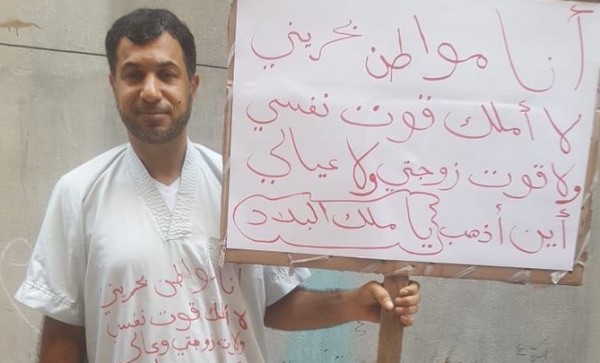 أنا مواطن بحريني
لا أملك قوت نفسي
ولا قوت زوجتي ولا عيالي
أين أذهب يا ملك البلاد
أنا مواطن بحريني
لا أملك قوت نفسي
ولا قوت زوجتي وعيالي